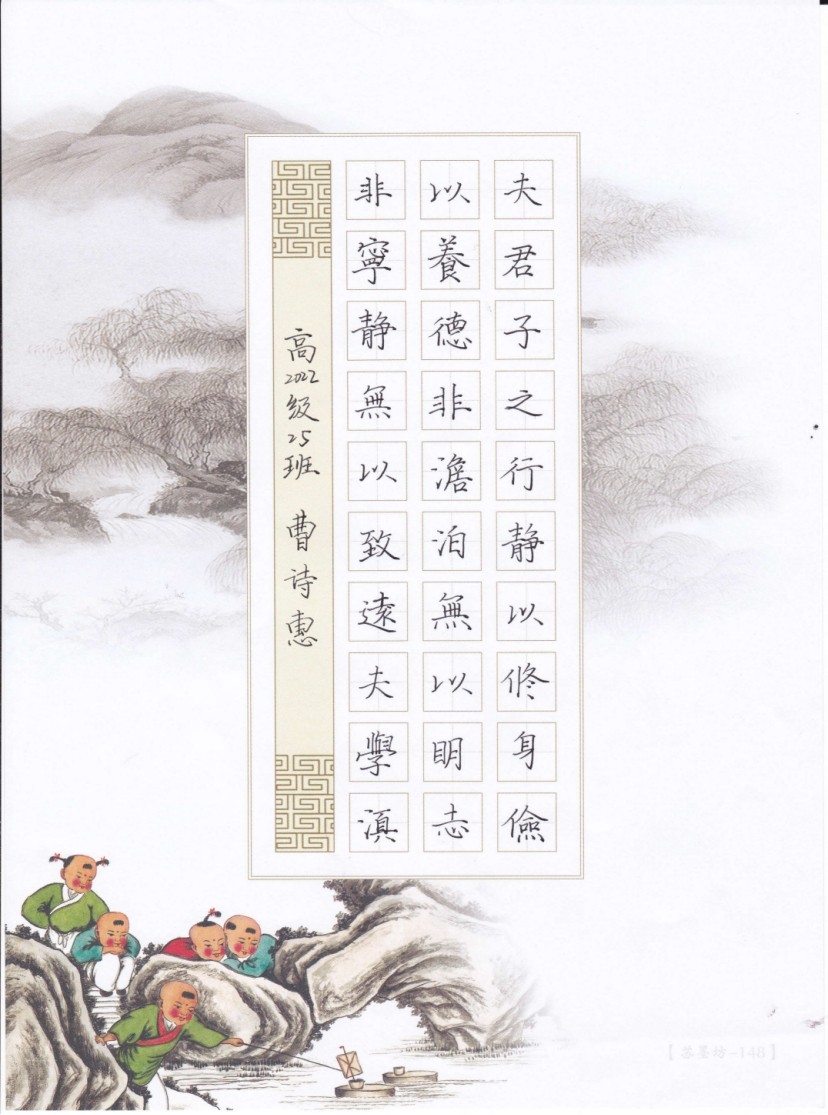 夫君子之行静以修身儉
以養德非澹泊無以明志
非寧静無以致遠夫學滇
高2022级25班 曹诗惠
【苏墨坊-148】